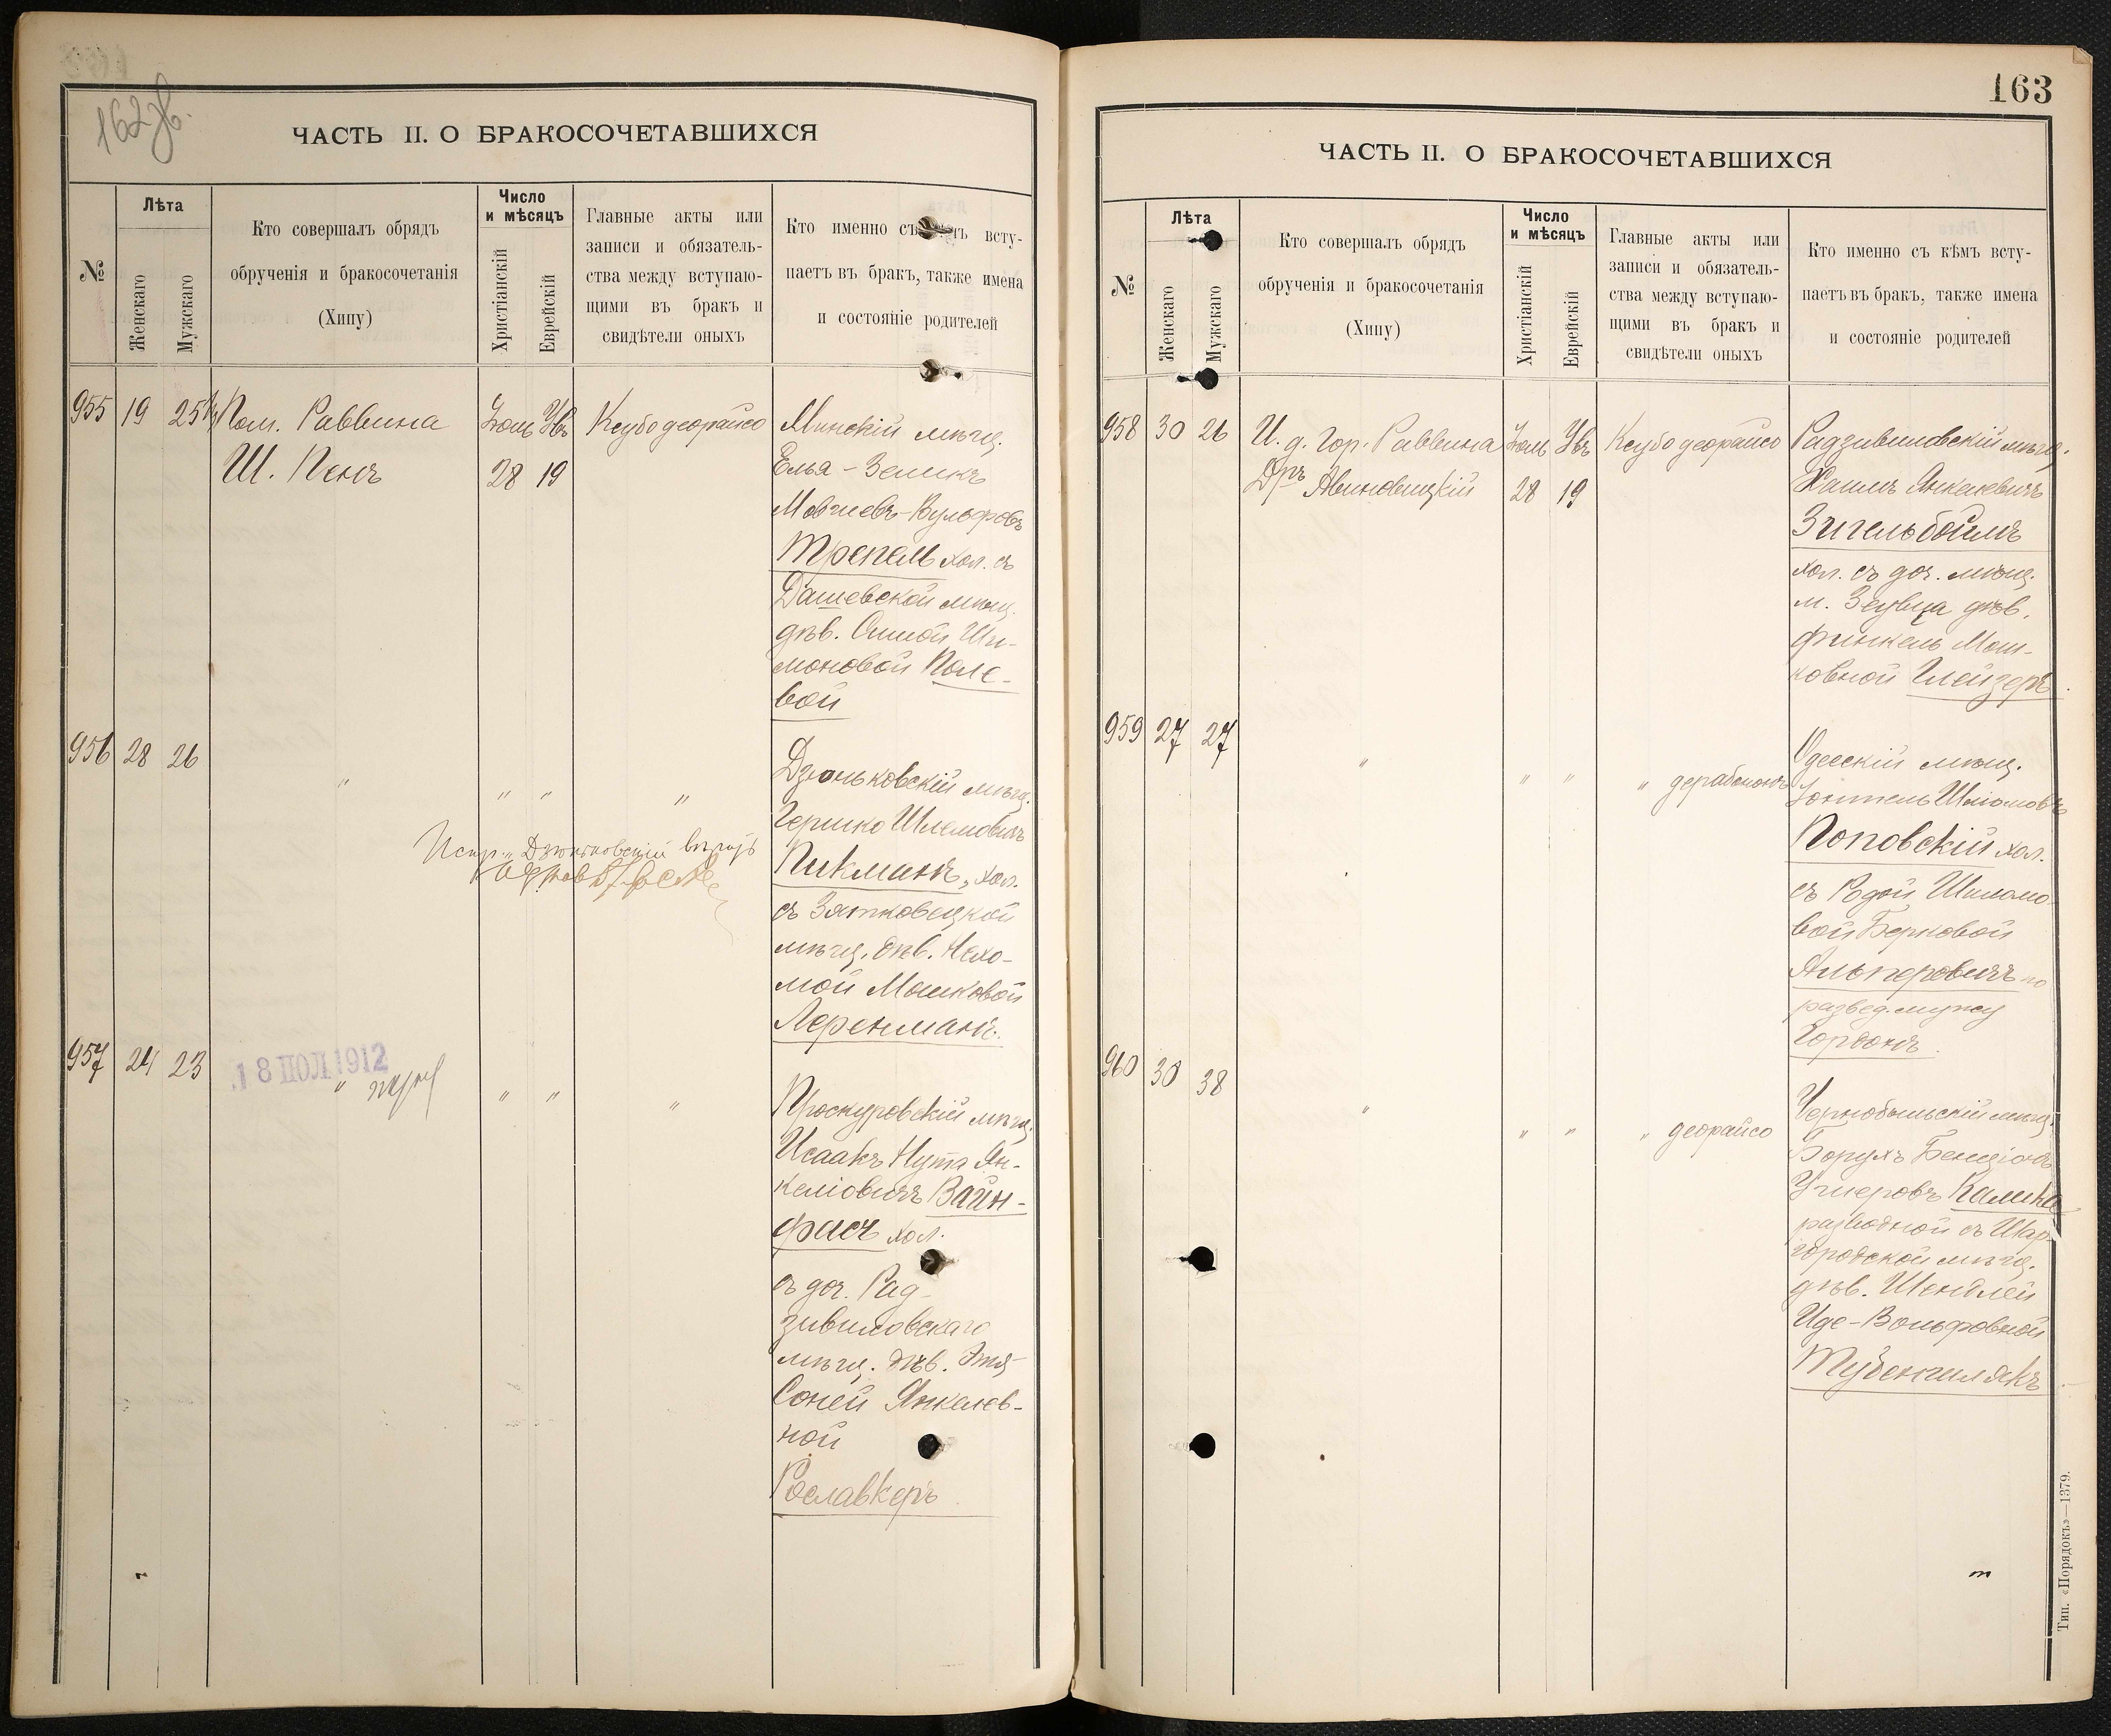 162 об.
ЧАСТЬ II. О БРАКОСОЧЕТАВШИХСЯ
№
Лѣта
Женскаго
Мужскаго
Кто совершалъ обрядъ
обрученія и бракосочетанія
(Хипу)
Число
и мѣсяцъ
Христіанскій
Еврейскій
Главные акты или
записи и обязатель-
ства между вступаю-
щими въ бракъ и
свидѣтели оныхъ
Кто именно съ всту-
паетъ въ бракъ, также имена
и состояніе родителей
955 19 25
Пом. Раввина
Ш. Пенъ
28 19
Ксубо деорайсо
Минскій мѣщ.
Елья-Зеликъ
Мовшевъ-Вульфовъ
Трепель хол. съ
Дашевской мѣщ.
дѣв. Симой Ши-
моновой Поле-
вой
956 28 26
" " " "
Дзюньковскій мѣщ.
Гершко Шлемовичъ
Пикманъ, хол.
съ Зятковецкой
мѣщ. дѣв. Нехо-
мой Мошковой
Леренманъ.
Испр. "Дзюньковскій" вѣрно
957 24 23
18 ІЮЛ 1912
" " " "
Проскуровскій мѣщ.
Исаакъ Нута Ян-
келіовичъ Вайн-
фасъ хол.
съ доч. Рад-
зивиловскаго
мѣщ. дѣв. Этя-
Соней Янкелев-
ной
Рославкеръ
163
ЧАСТЬ II. О БРАКОСОЧЕТАВШИХСЯ
№
Лѣта
Женскаго
Мужскаго
Кто совершалъ обрядъ
обрученія и бракосочетанія
(Хипу)
Число
и мѣсяцъ
Христіанскій
Еврейскій
Главные акты или
записи и обязатель-
ства между вступаю-
щими въ бракъ и
свидѣтели оныхъ
Кто именно съ кѣмъ всту-
паетъ въ бракъ, также имена
и состояніе родителей
958 30 26
И. д. Гор. Раввина
Дръ Авиновицкій
28 19
Ксубо деорайсо
Радзивиловскій мѣщ.
Хаимъ Янкелевичъ
Зигельбоймъ
хол. съ доч. мѣщ.
м. дѣв.
Финкель Мош-
ковной Глейзеръ
959 27 27
" " " " дерабононъ
Одесскій мѣщ.
Шліомовъ
Поповскій хол.
съ Родой Шиломо-
вой Берковой
Альперовичъ по
развед. мужу
Гордонъ.
960 30 38
" " " " деорайсо
Чернобыльскій мѣщ.
Борухъ Бенціонъ
Ушеровъ Калика
разводной съ Шар-
городской мѣщ.
дѣв. Шендлей
Иде-Вольфовной
Тубенчилякъ
Тип. «Порядокъ»—1379.